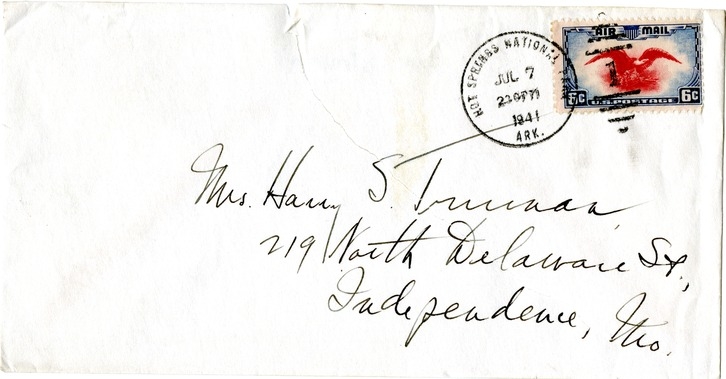 HOT SPRINGS NATIONAL
JUL 7
1941
ARK.
AIR MAIL
U.S. POSTAGE
6c 6c
Mrs. Harry S. Truman,
219 North Delaware St.,
Independence, Mo.